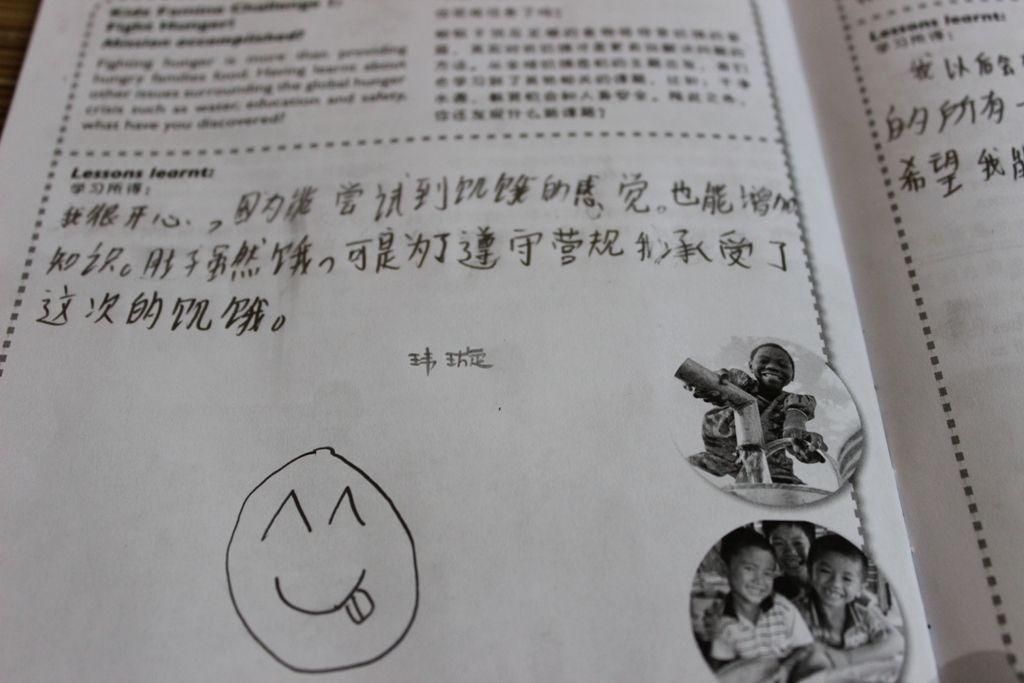 Kids Famine Challenge 1:
Fight Hunger!
Mission accomplished!
Fighting hunger is more than providing
hungry families food. Having learnt about
other issues surrounding the global hunger
crisis such as water, education and safety,
what have you discovered?
你还发现什么新课题?
Lessons learnt:
学习所得:
我很开心,因为能尝试到饥饿的感觉。也能增加
知识。肚子虽然饿,可是为了遵守营规我承受了
这次的饥饿。
玮璇
Lessons learnt:
学习所得:
我以后会
的所有一
希望我能